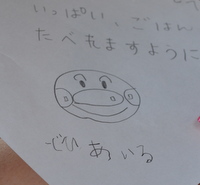 いっぱい、ごはん
たべれますように
ぜひ あ いる